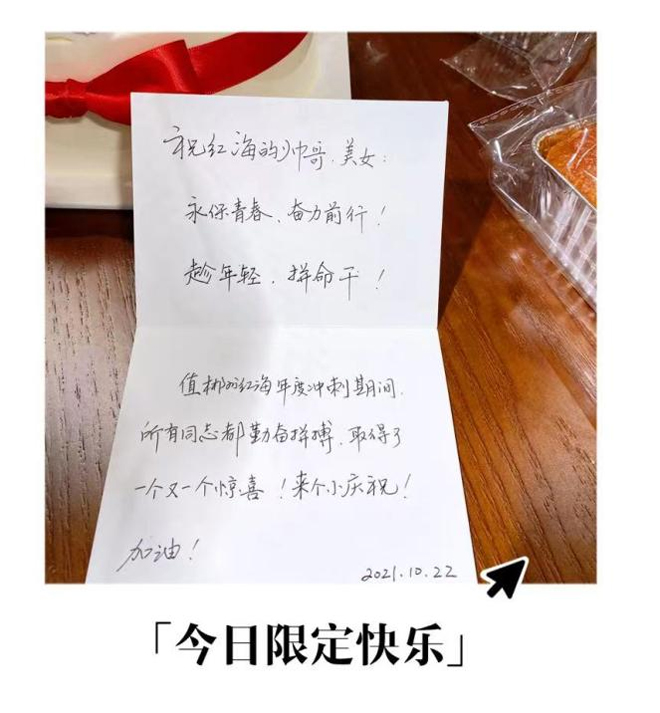 祝红海的帅哥、美女：
永保青春、奋力前行！
趁年轻，拼命干！
值郴州红海年度冲刺期间，
所有同志都勤奋拼搏，取得了
一个又一个惊喜！来个小庆祝！
加油！
2021.10.22
「今日限定快乐」